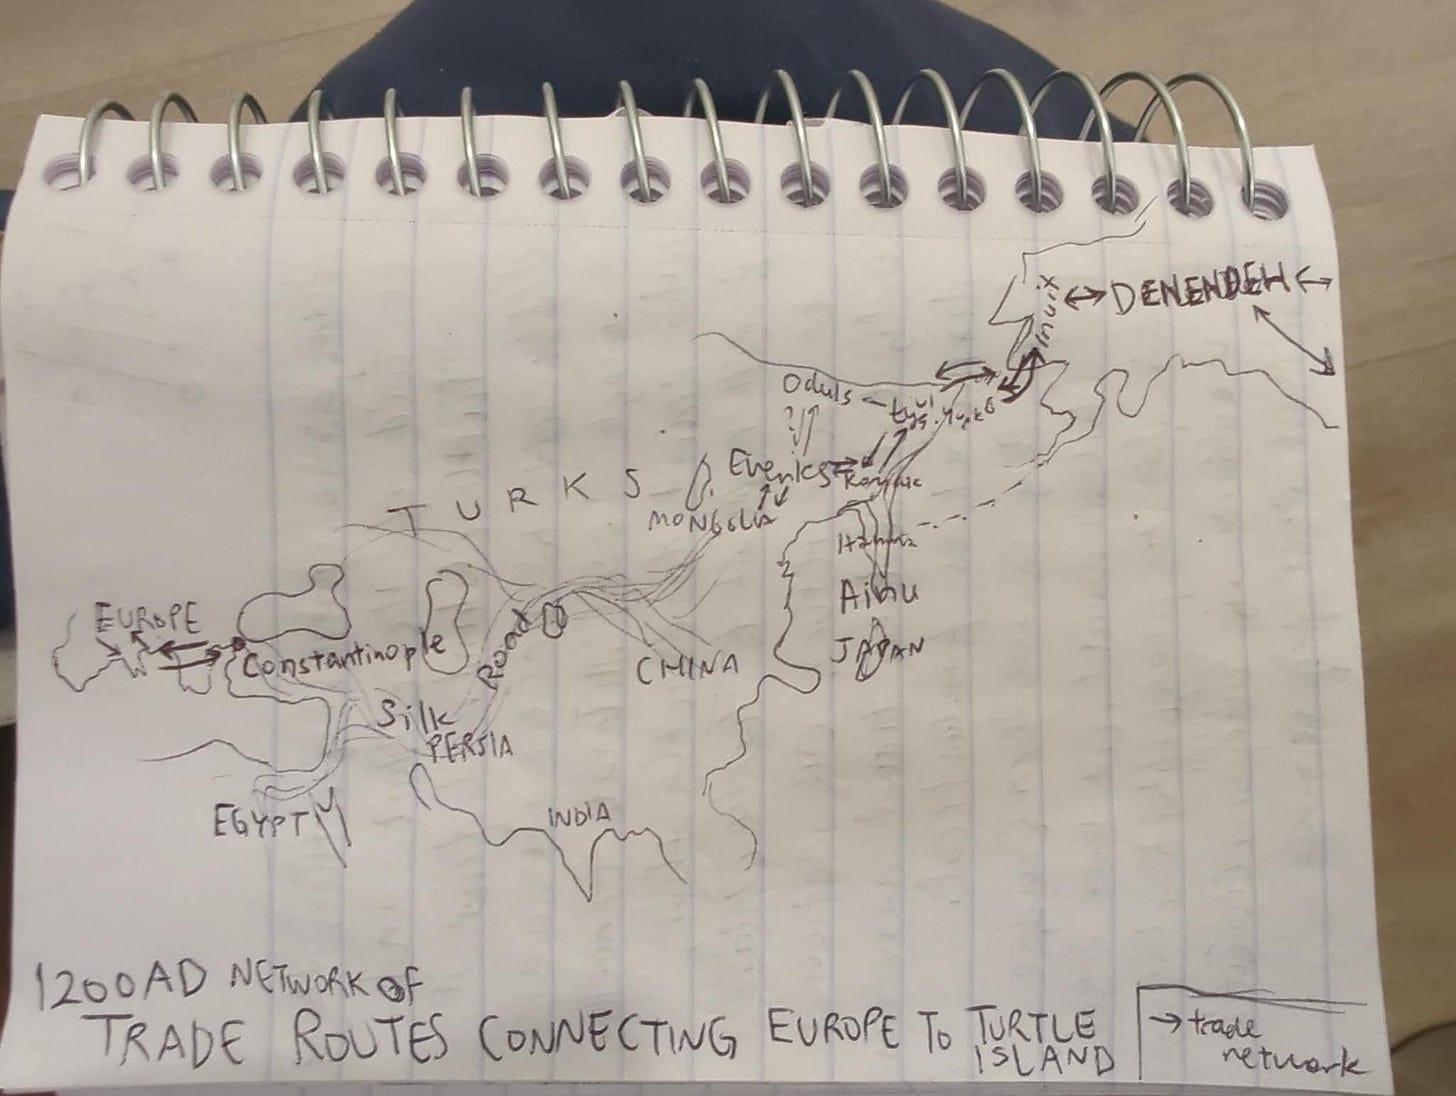 Inuix
DENENDEH
Oduls
Evenks
TURKS
MONGOLIA
Ainu
JAPAN
EUROPE
Constantinople
Silk
Road
CHINA
PERSIA
EGYPT
INDIA
1200AD NETWORK OF
TRADE ROUTES CONNECTING EUROPE TO TURTLE
ISLAND
→ trade
network